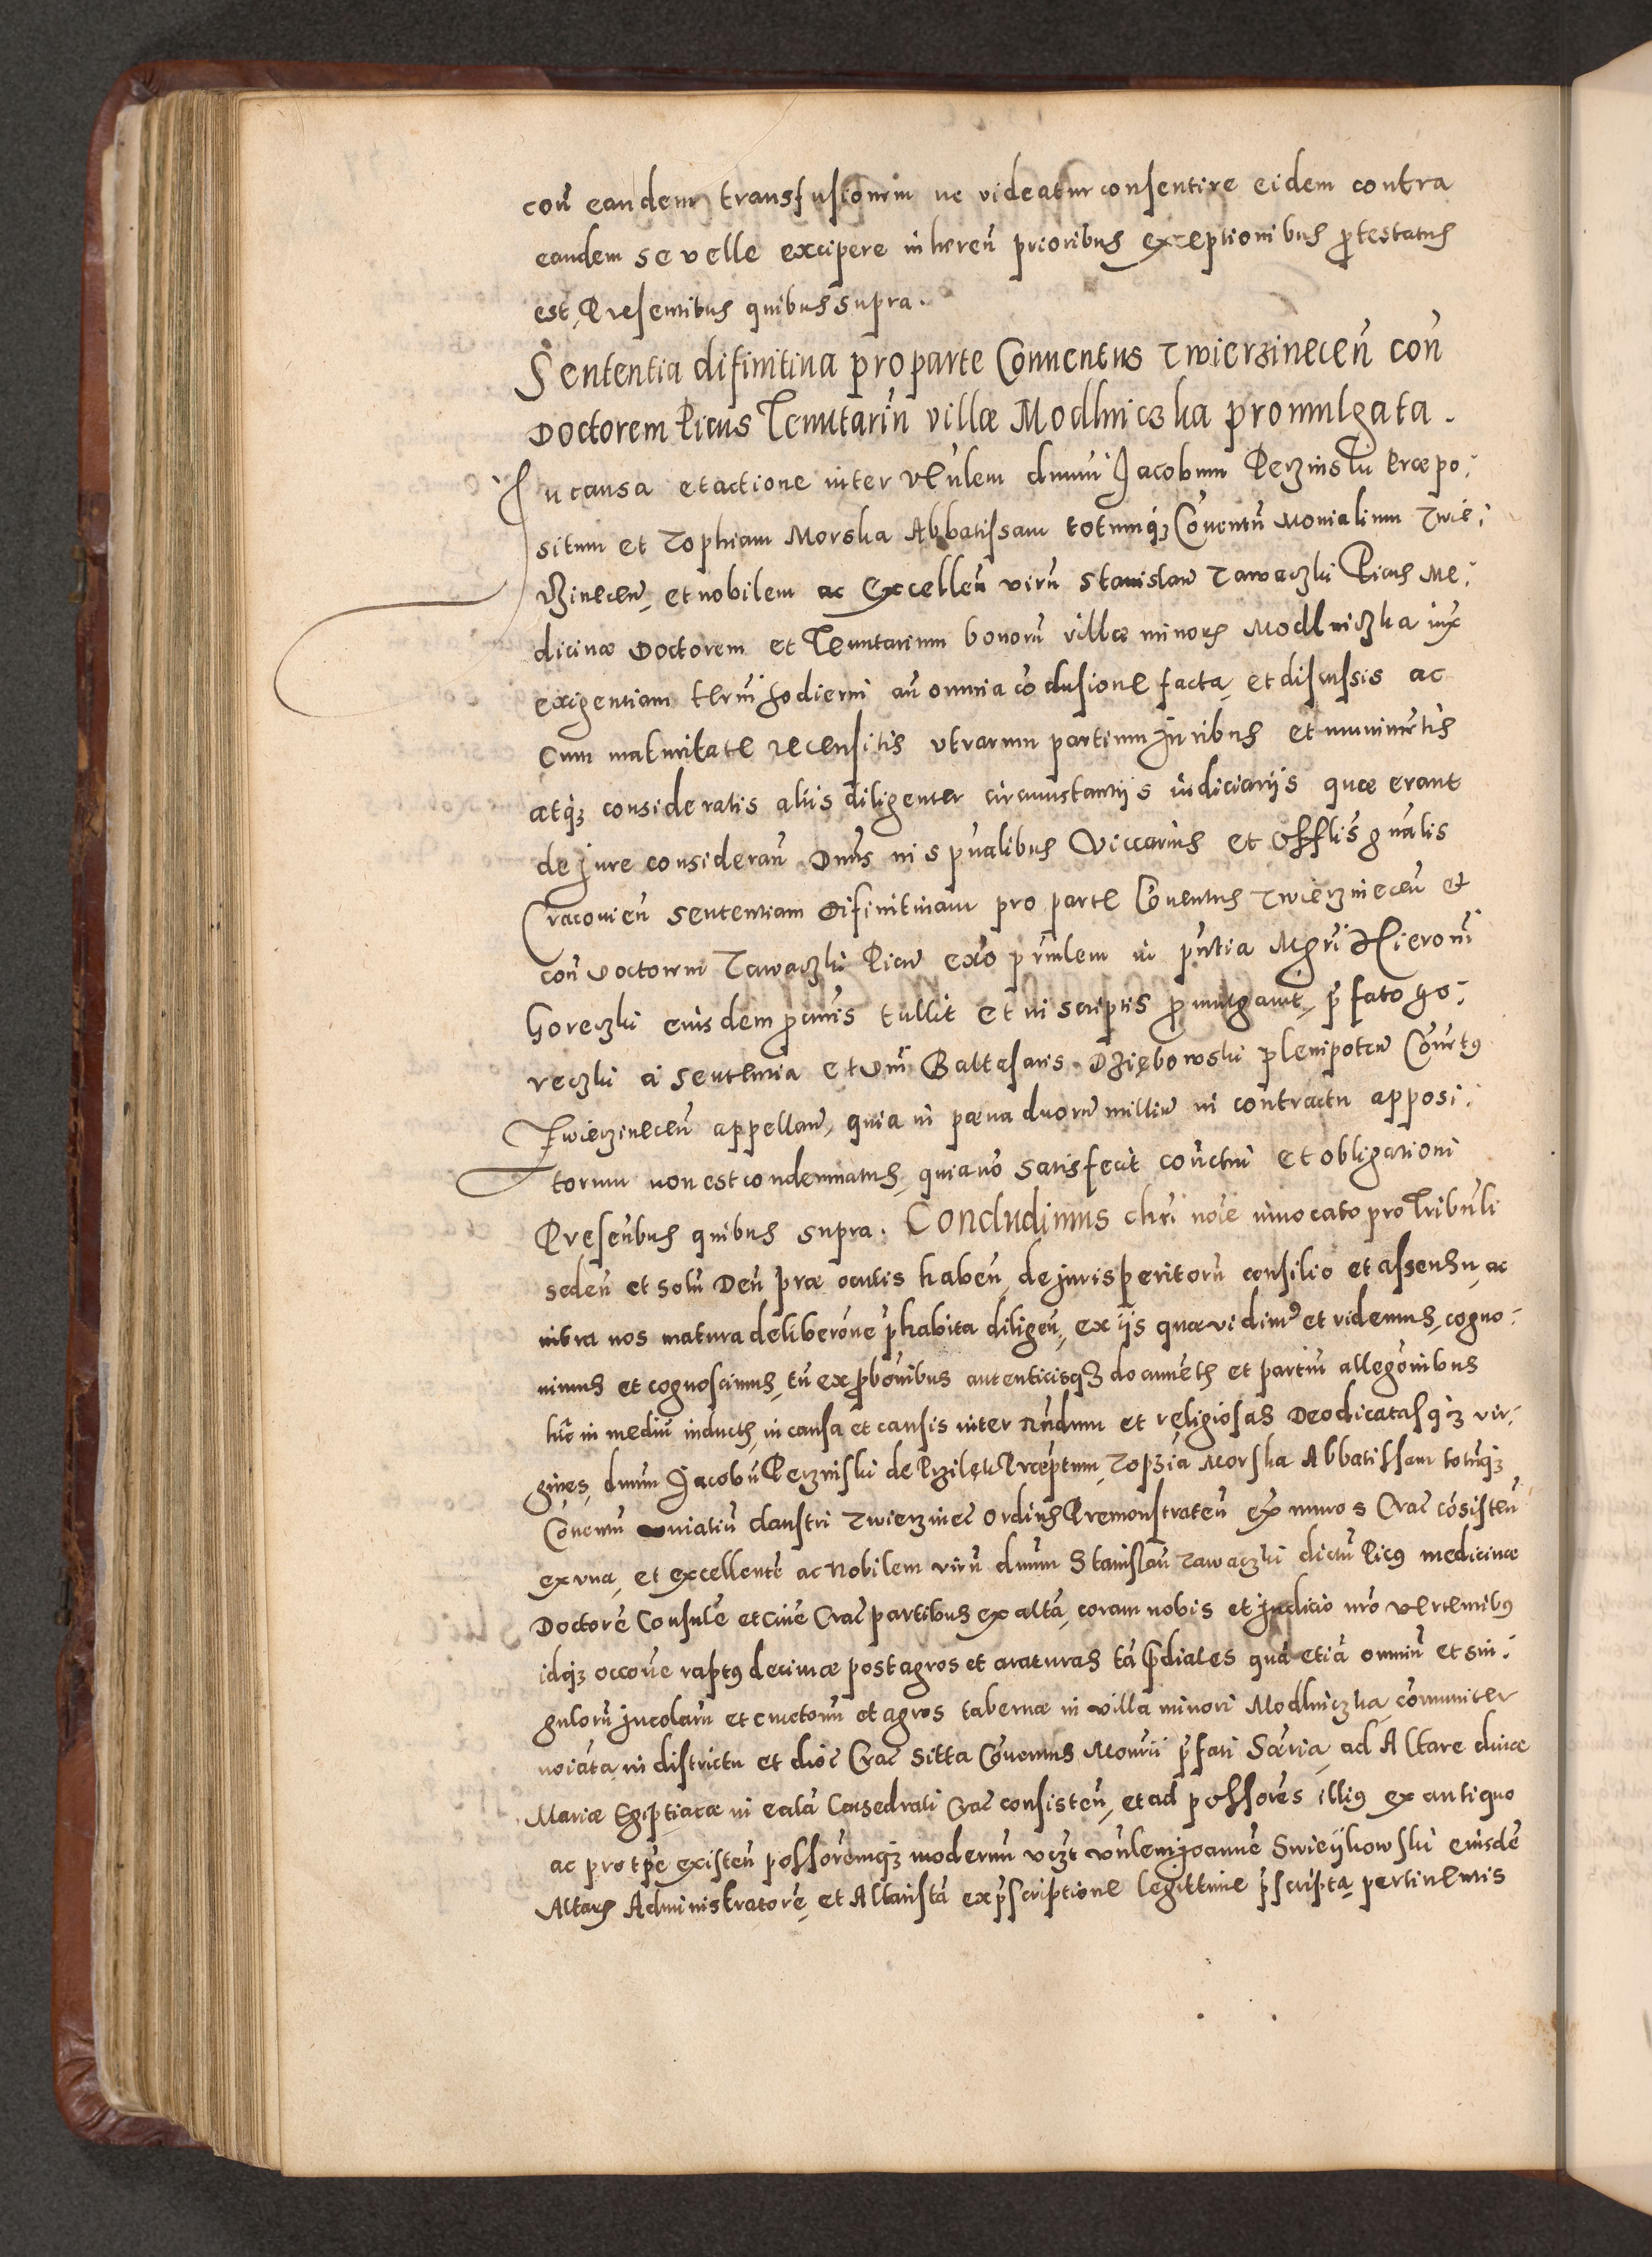 coñ eandem transfusionem ne videatur consentire eidem contra
eandem se velle excipere inhereñ prioribus exceptionibus protestatus
est, Presentibus quibus supra.
Sententia difinitiva pro parte Conventus Zwierzineceñ coñ
Doctorem Picus Tenutariũ villæ Modlniczka promulgata.
In causa et actione inter Veñlem dnum Jacobum Perzinski Præpo:
situm et Zophiam Morska Abbatissam totumq̃ Coñventũ Monialium Zwie:
rzineceñ, et nobilem ac Excelleñ virũ Stanislaũ Zawaczki Picus Me:
dicinæ Doctorem et Tenutarium bonorũ villæ minoris Modlniczka iux
exigentiam termĩ hodierni añ omnia coñclusione facta, et discussis ac
cum maturitate recensitis utrarum partium Juribus et munimẽtis
atq̃ consideratis aliis diligenter circumstantiis iudiciariis quæ erant
de Jure considerañ Dnũs in spũalibus Viccarius et Offlis gñalis
Cracovieñ sententiam difinitivam pro parte Coñventus Zwierznieceñ et
coñ Doctorem Zawaczki Picũ exõ prñlem in pñtia Mgrĩ Hieronĩ
Goreczki eiusdem procũris tullit et in scriptis promulgavit, p̃fato Go:
reczki a sententia et Dnĩ Baltasaris Dziębowski plenipoteñ Coñvẽtus
Zwierzineceñ appellañ, quia in pæna duorũ milliũ in contractu apposi:
torum non est condemnatus, quia nõ satisfecit coñtractui et obligationi
Preseñbus quibus supra. Concludimus chrĩ noĩe invocato pro Tribuñli
sedeñ et solũ Deũ præ oculis habeñ, de jurisperitorũ consilio et assensu, ac
intra nos matura deliberoñe p̃habita diligeñ, ex iis quæ vidimus et videmus, cogno:
vimus et cognoscimus, tũ ex proboñibus autenticisq̃ documẽtis et partiũ allegoñibus
hĩc in mediũ inductis, in causa et causis inter Rñdum et religiosas Deodicatasq̃ vir:
gines, dnum Jacobũ Perzinski de Przilęk Præptum, Zophiã Morska Abbatissam totũq̃
Coñventũ monialiũ claustri Zwierzniec̃ Ordinis Premonstrateñ ex̃ muros Crac̃ coñsisteñ
ex una, et excellentẽ ac Nobilem virũ dnum Stanislaũ Zawaczki dictũ Picus medicinæ
Doctorẽ Consulẽ et Civẽ Crac̃ partibus ex altã, coram nobis et Judicio nrõ vertentibus
idq̃ occoñe raptus decimæ post agros et araturas tã p̃diales quã etiã omniũ et sin:
gulorũ Incolarũ et cmetonũ et agros tabernæ in villa minori Modlniczka, coñmuniter
noĩata, in districtu et dioc̃ Crac̃ sitta Coñventus Monrii p̃fati Særia, ad Altare divæ
Mariæ Egiptiacæ in ecclã Cathedrali Crac̃ consisteñ, et ad possores illius ex antiquo
ac pro tp̃e existeñ possoremq̃ modernũ vczt Veñlem Joannẽ Swieykowski eiusdẽ
Altaris Administratorẽ, et Altaristã ex p̃scriptione legittime p̃scripta, pertinentis